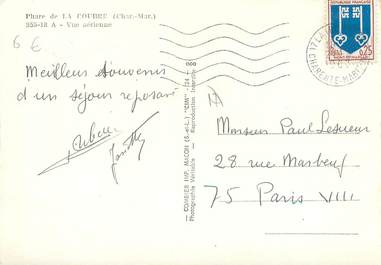 Phare de LA COUBRE (Char.-Mar.)
355-18 A - Vue aérienne
6 €
Meilleurs souvenirs
d'un séjour reposant
COMBIER IMP. MACON (S.-et-L.) "CIM"
Photographie Véritable - Reproduction Interdite
REPUBLIQUE FRANÇAISE
0,25
17 LA
CHARENTE-MARITIME
Monsieur Paul Lesueur
28 rue Marbeuf
75 Paris VIII